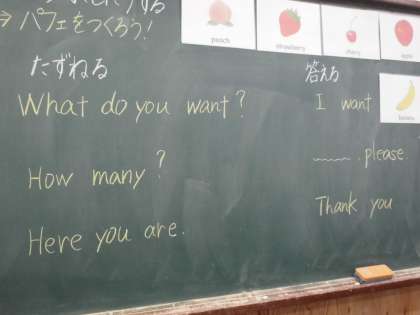 パフェをつくろう!
peach
strawberry
cherry
apple
banana
たずねる
What do you want?
How many?
Here you are.
答える
I want
please.
Thank you